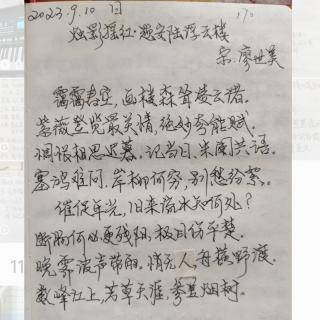 2023.9.10 日
烛影摇红·题安陆浮云楼
宋·廖世美
霭霭春空,画楼森耸凌云渚.
紫薇登览最关情,绝妙夸能赋.
惆怅相思迟暮.记当日、朱阑共语.
塞鸿难问,岸柳何穷,别愁纷絮.
催促年光,旧来流水知何处?
断肠何必更残阳,极目伤平楚.
晚霁波声带雨.悄无人,舟横野渡.
数峰江上,芳草天涯,参差烟树.